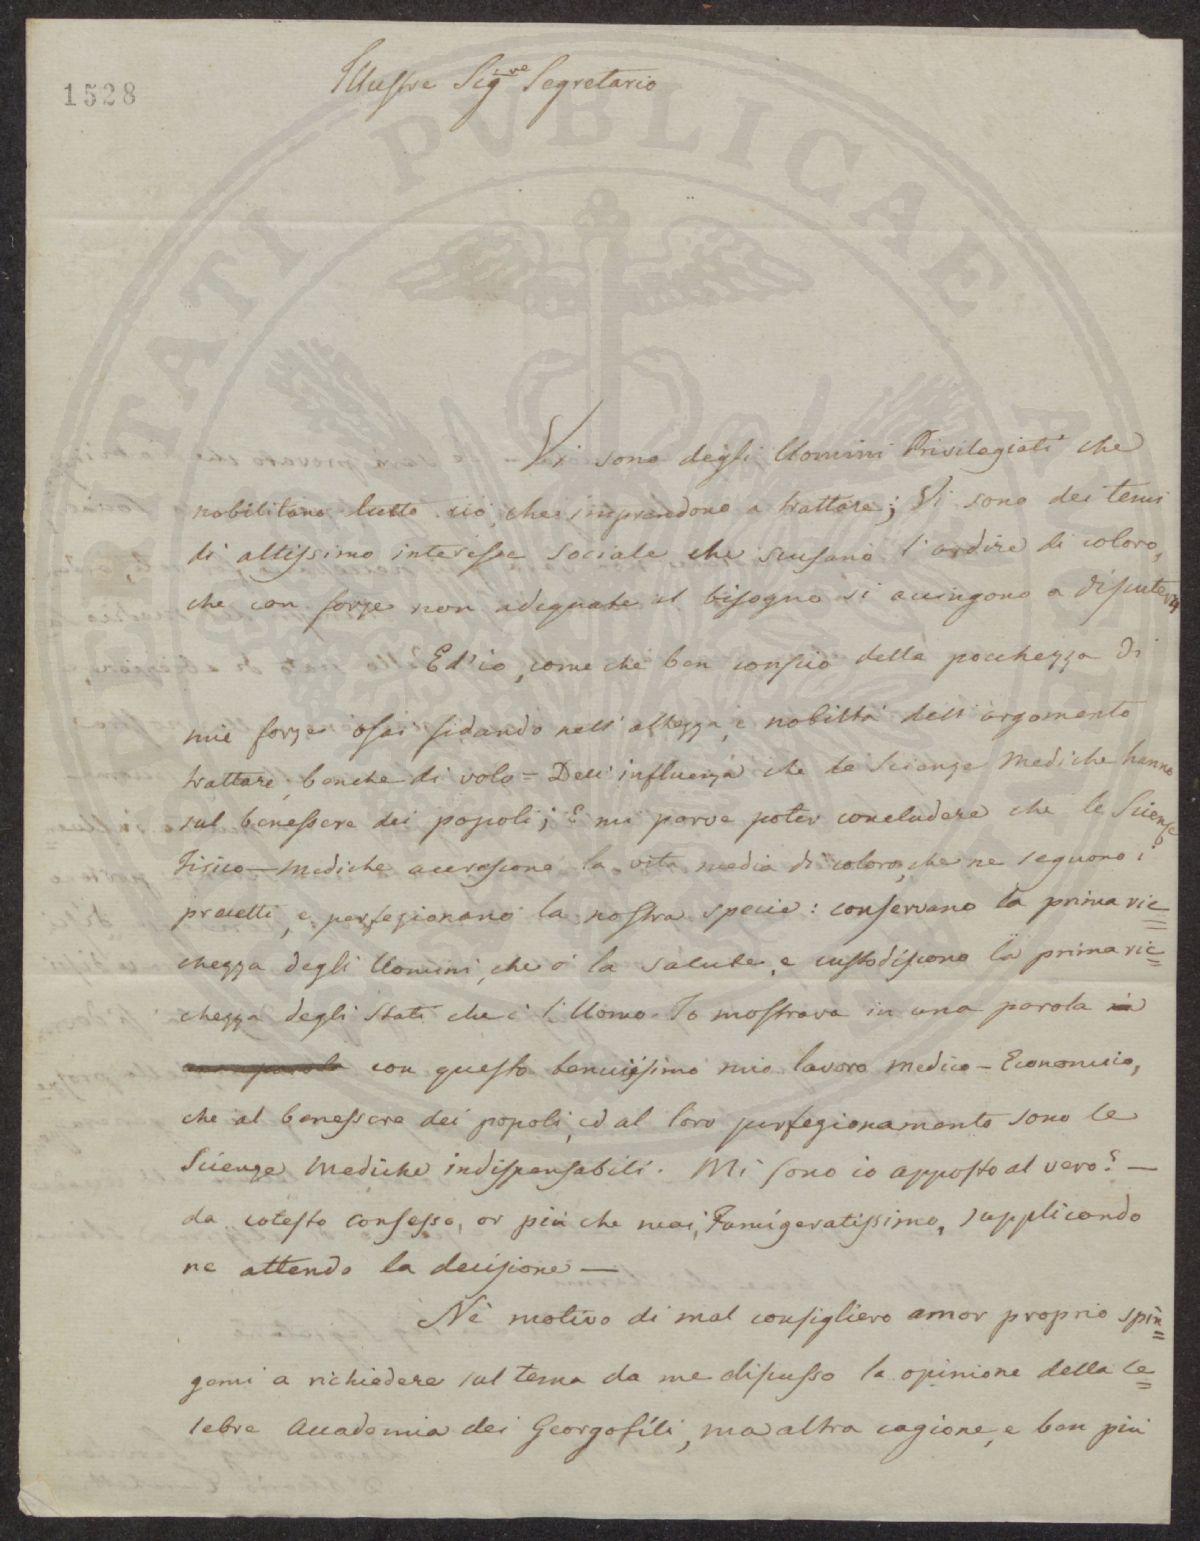 1528
Illustre Sig.re Segretario
PROSPERITATI PUBLICAE AUGENDAE
Vi sono degli Uomini Privilegiati che
nobilitano tutto ciò, che imprendono a trattare; Vi sono dei temi
di altissimo interesse sociale che scusano l'ardire di coloro,
che con forze non adeguate al bisogno si accingono a disputarvi
Ed io, come che ben conscio della pochezza di
mie forze osai fidando nell'altezza, e nobiltà dell'argomento
trattare, benche di volo = Dell'influenza che le Scienze Mediche hanno
sul benessere dei popoli; E mi parve poter concludere che le Scienze
Fisico-Mediche accrescono la vita media di coloro, che ne seguono i
precetti, e perfezionano la nostra specie: conservano la prima ric=
chezza degli Uomini, che è la salute, e custodiscono la prima ric=
chezza degli Stati che è l'Uomo. Io mostrava in una parola in
una parola con questo tenuissimo mio lavoro Medico-Economico,
che al benessere dei popoli, ed al loro perfezionamento sono le
Scienze Mediche indispensabili. Mi sono io apposto al vero? —
da cotesto consesso, or più che mai, Famigeratissimo, supplicando
ne attendo la decisione —
Nè motivo di mal consigliero amor proprio spin=
gemi a richiedere sul tema da me discusso la opinione della ce=
lebre Accademia dei Georgofili, ma altra cagione, e ben più